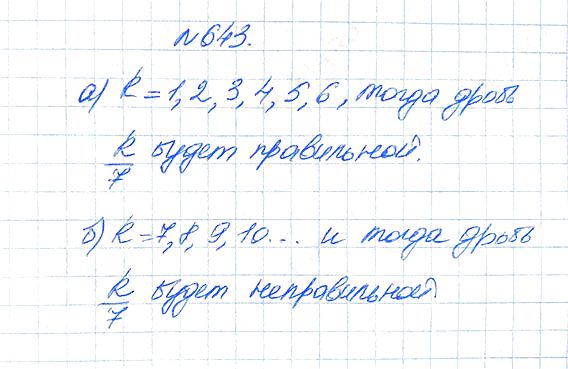 №643.
а) k = 1, 2, 3, 4, 5, 6, тогда дробь
k/7 будет правильной.
б) k = 7, 8, 9, 10... и тогда дробь
k/7 будет неправильной